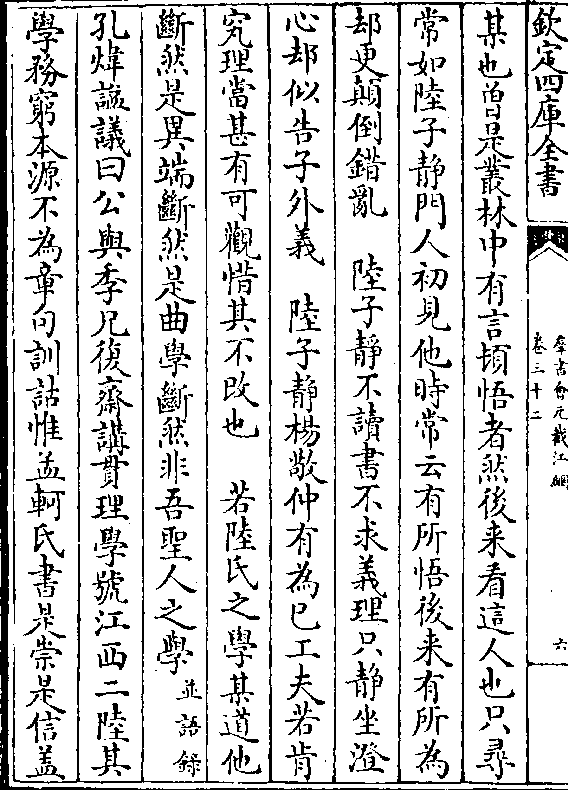 欽定四庫全書
羣書會元截江網
卷三十二
六
某也曽是叢林中有言頓悟者然後来看這人也只尋
常如陸子静門人初見他時常云有所悟後来有所為
却更顛倒錯亂　陸子静不讀書不求義理只静坐澄
心却似告子外義　陸子静楊敬仲有為已工夫若肯
究理當甚有可觀惜其不改也　若陸氏之學某道他
斷然是異端斷然是曲學斷然非吾聖人之學並語錄
孔煒諡議曰公與季兄復齋講貫理學號江西二陸其
學務窮本源不為章句訓詁惟孟軻氏書是崇是信盖